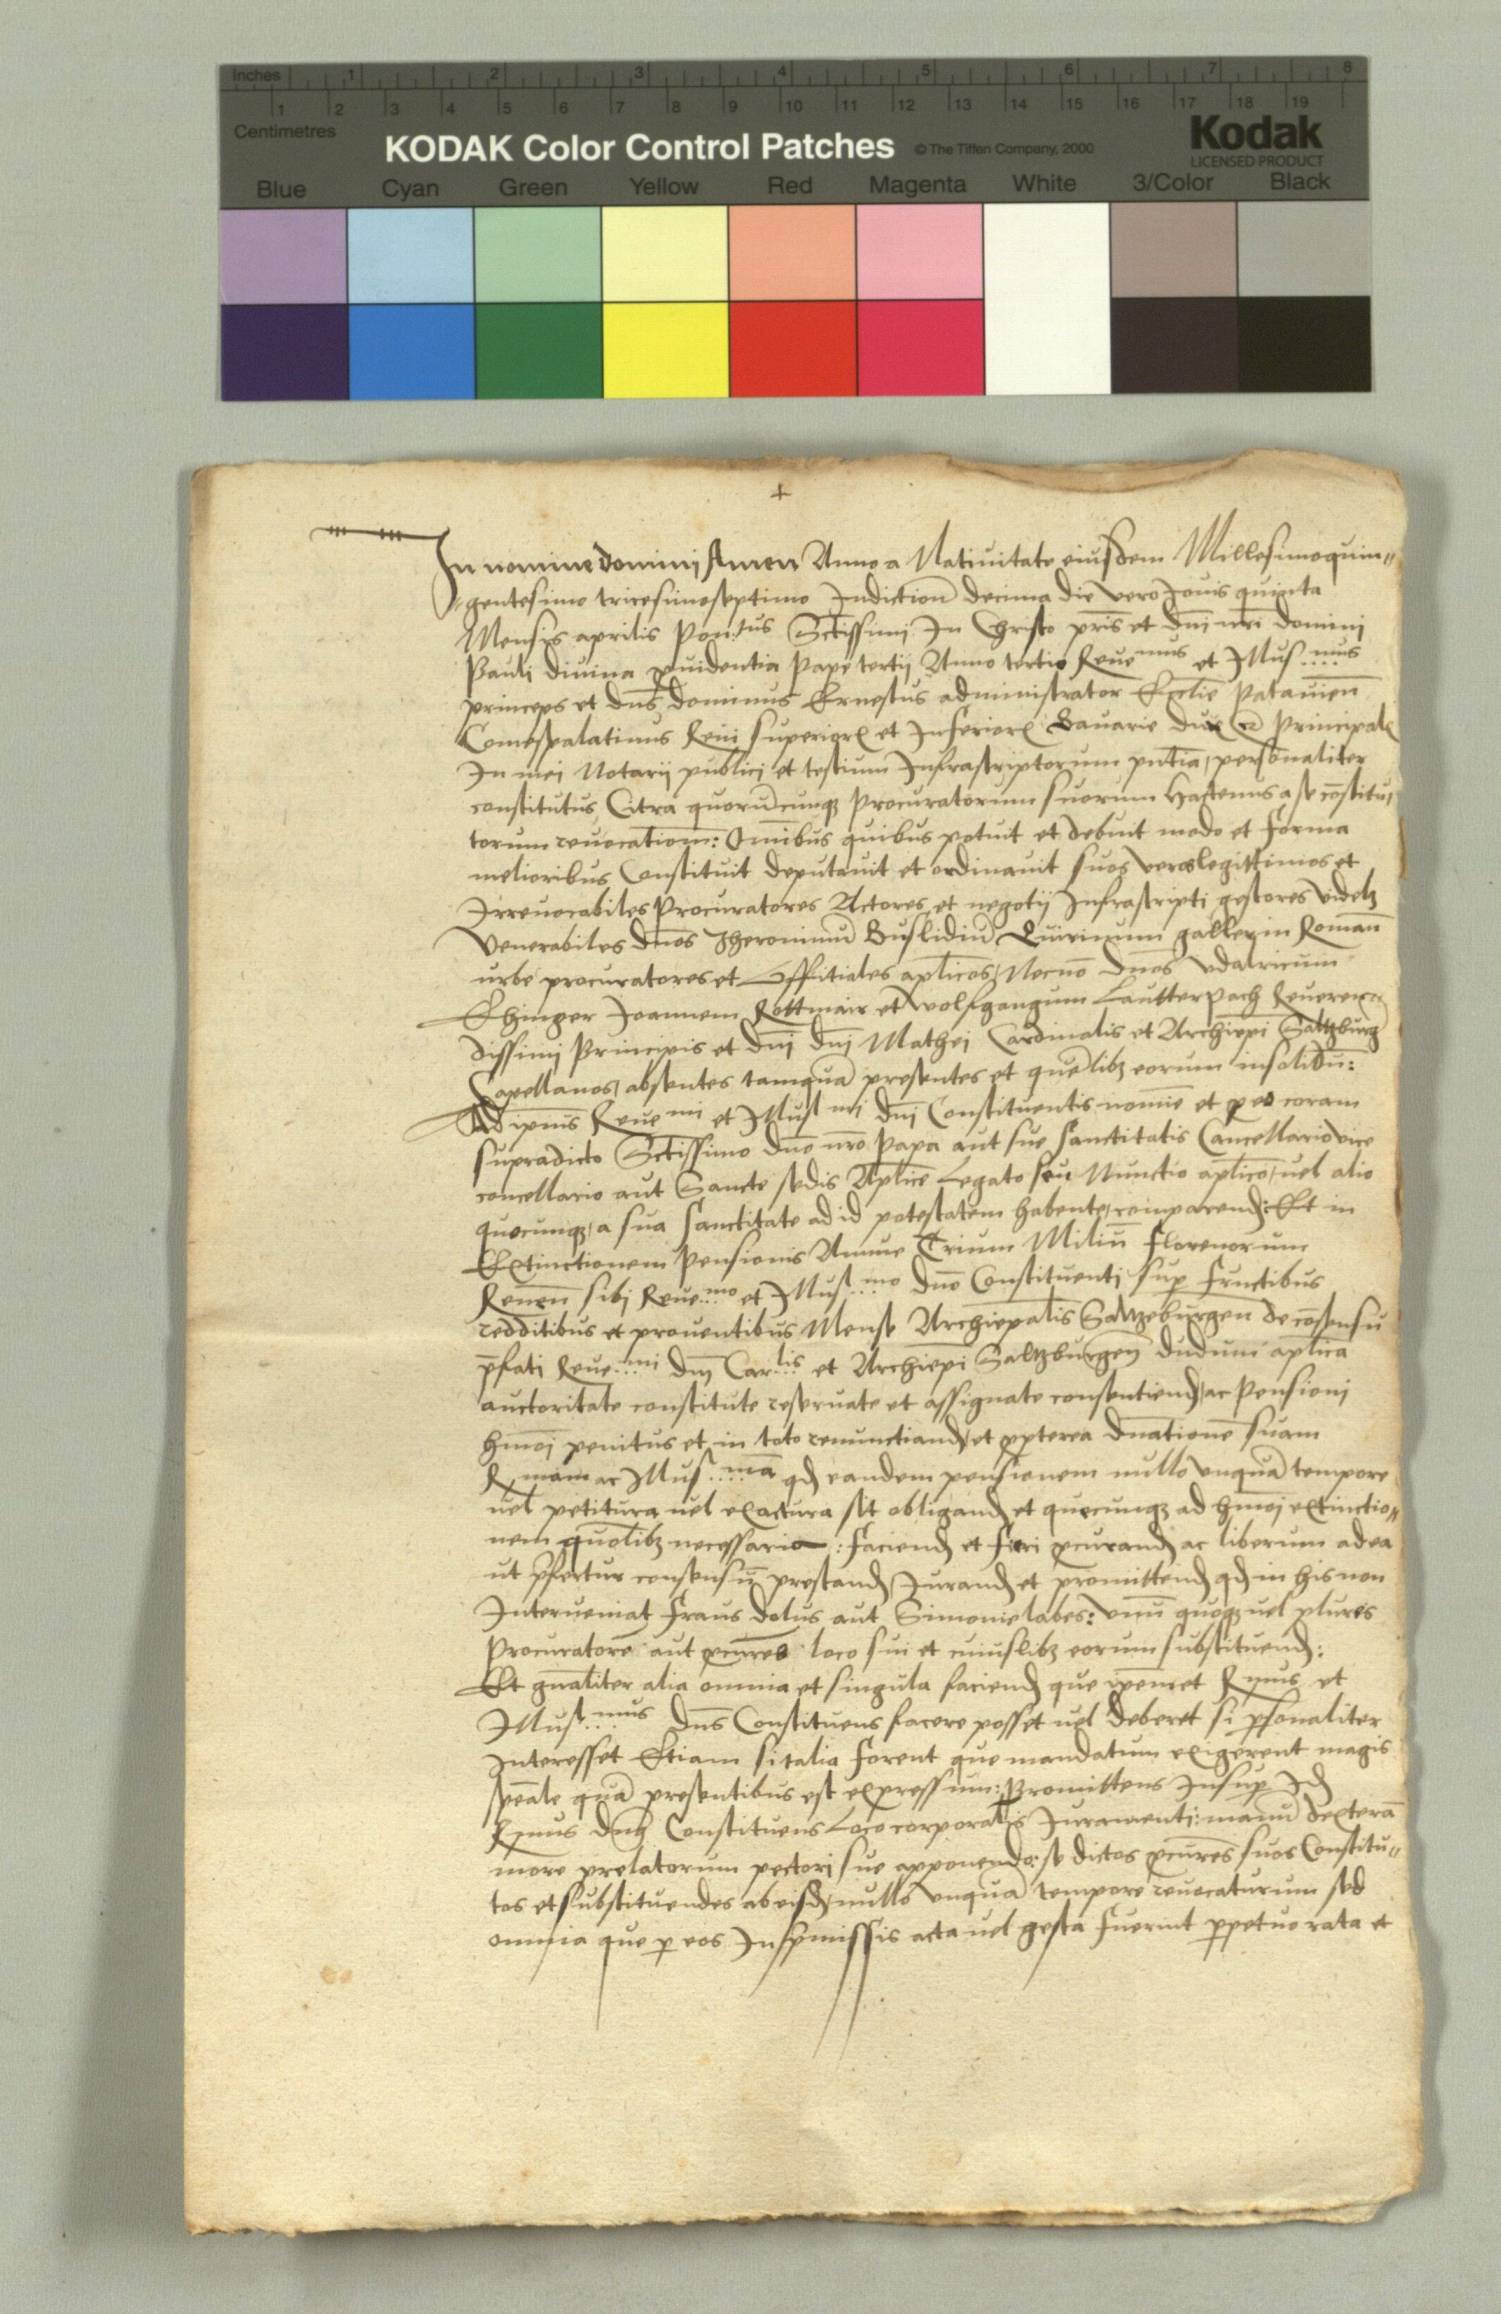 Inches 1 2 3 4 5 6 7 8
1 2 3 4 5 6 7 8 9 10 11 12 13 14 15 16 17 18 19
Centimetres
KODAK Color Control Patches © The Tiffen Company, 2000 Kodak
LICENSED PRODUCT
Blue Cyan Green Yellow Red Magenta White 3/Color Black
+
In nomine domini Amen Anno a Natiuitate eiusdem Millesimoquin„
gentesimo tricesimoseptimo Indiction̄ decima die vero Jouis quinta
Mensis aprilis Pon:tus Sctissimi In Christo pris̄ et dnī nrī domini
Pauli diuina ꝓuidentia Pape tertij Anno tertio Reue mus et Illus..mus
princeps et dns̄ dominus Ernestus administrator Ecclie Patauien̄
Comespalatinus Reni superior et Inferior Bauarie dux Principal
In mei Notarij publici et testium Infrascriptorum pn̄tia, personaliter
constitutus, Citra quorūcunqꝫ Procuratorum suorum hactenus a se cōstitu,
torum reuocationem̄: Om̄ibus quibus potuit et debuit modo et forma
melioribus Constituit deputauit et ordinauit suos veros legittimos et
Irreuocabiles Procuratores Actores et negotij Infrascripti gestores videlꝫ
Venerabiles dnōs Jheronimū Buslidiū Quirinum galler in Roman̄
urbe procuratores et Offitiales aplicos, Necnō dnōs Vdalricum
Ehinger Joannem Rottmair et Wolfgangum Lautterpach Reueren„
dissimi Principis et dnī dnī Mathei Cardinalis et Archiepi Saltzburg
Capellanos, absentes tamquā presentes et quēlibꝫ eorum insolidū:
Ad ipsius Reue mi et Illus mi dnī Constituentis nomīe et ꝑ eo coram
supradicto Sctissimo dnō nrō Papa aut sue sanctitatis Cancellario vice
concellario aut Sancte sedis Aplice Legato seu Nunctio aplico, uel alio
quocunqꝫ, a sua sanctitate ad id potestatem habente, comparend: Et in
Extinctionem Pensionis Annue Trium Miliū Florenorum
Renen̄ sibi Reue..mo et Illus..mo dnō Constituenti suꝑ fructibus
redditibus et prouentibus Mense Archiepalis Saltzeburgen̄ de cōsensu
p̄fati Reue..mi dnī Car..lis et Archiepi Saltzburgen̄ dudum aplica
auctoritate constitute reseruate et assignate consentiend, ac Pensioni
hmōi penitus et in toto renunctiand, et ꝓpterea dnationē suam
R mam ac Illus..mā qd eandem pensionem nullo vnquā tempore
uel petitura uel exactura sit obligand et quecunqꝫ ad hmōi extinctio„
nem quōlibꝫ necessaria: faciend et fieri ꝓcurand ac liberum ad ea
ut p̄fertur consensū prestand, Jurand et promittend qd in his non
Interueniat fraus dolus aut Simonie labes: vnū quoqꝫ uel plures
Procuratorē aut ꝓcures loco sui et cuiuslibꝫ eorum substituend:
Et gn̄aliter alia omnia et singula faciend que ipēmet Rmus et
Illus..mus dns̄ Constituens facere posset uel deberet si ꝑsonaliter
Interesset Etiam si talia forent que mandatum exigerent magis
speāle quā presentibus est expressum: Promittens Insuꝑ Id
Rmus dns̄ Constituens Loco corporalis Juramenti: manū dexterā
more prelatorum pectori suo apponendo: se dictos ꝓcures suos Constitu„
tos et substituendos ab eisd, nullo vnquā tempore reuocaturum sed
omnia que ꝑ eos In p̄missis acta uel gesta fuerint ꝑpetuo rata et